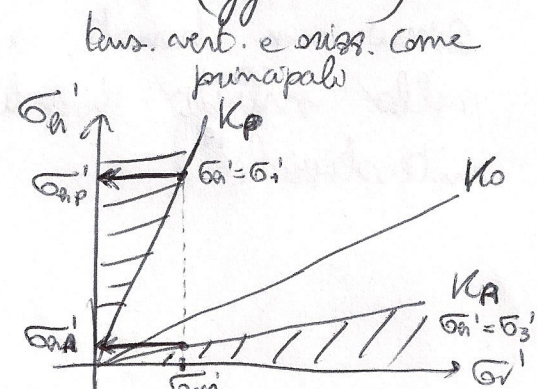 tens. vert. e orizz. come
principali
σh'
Kp
σhp'
σh'=σ1'
K0
KA
σh'=σ3'
σhA'
σv'